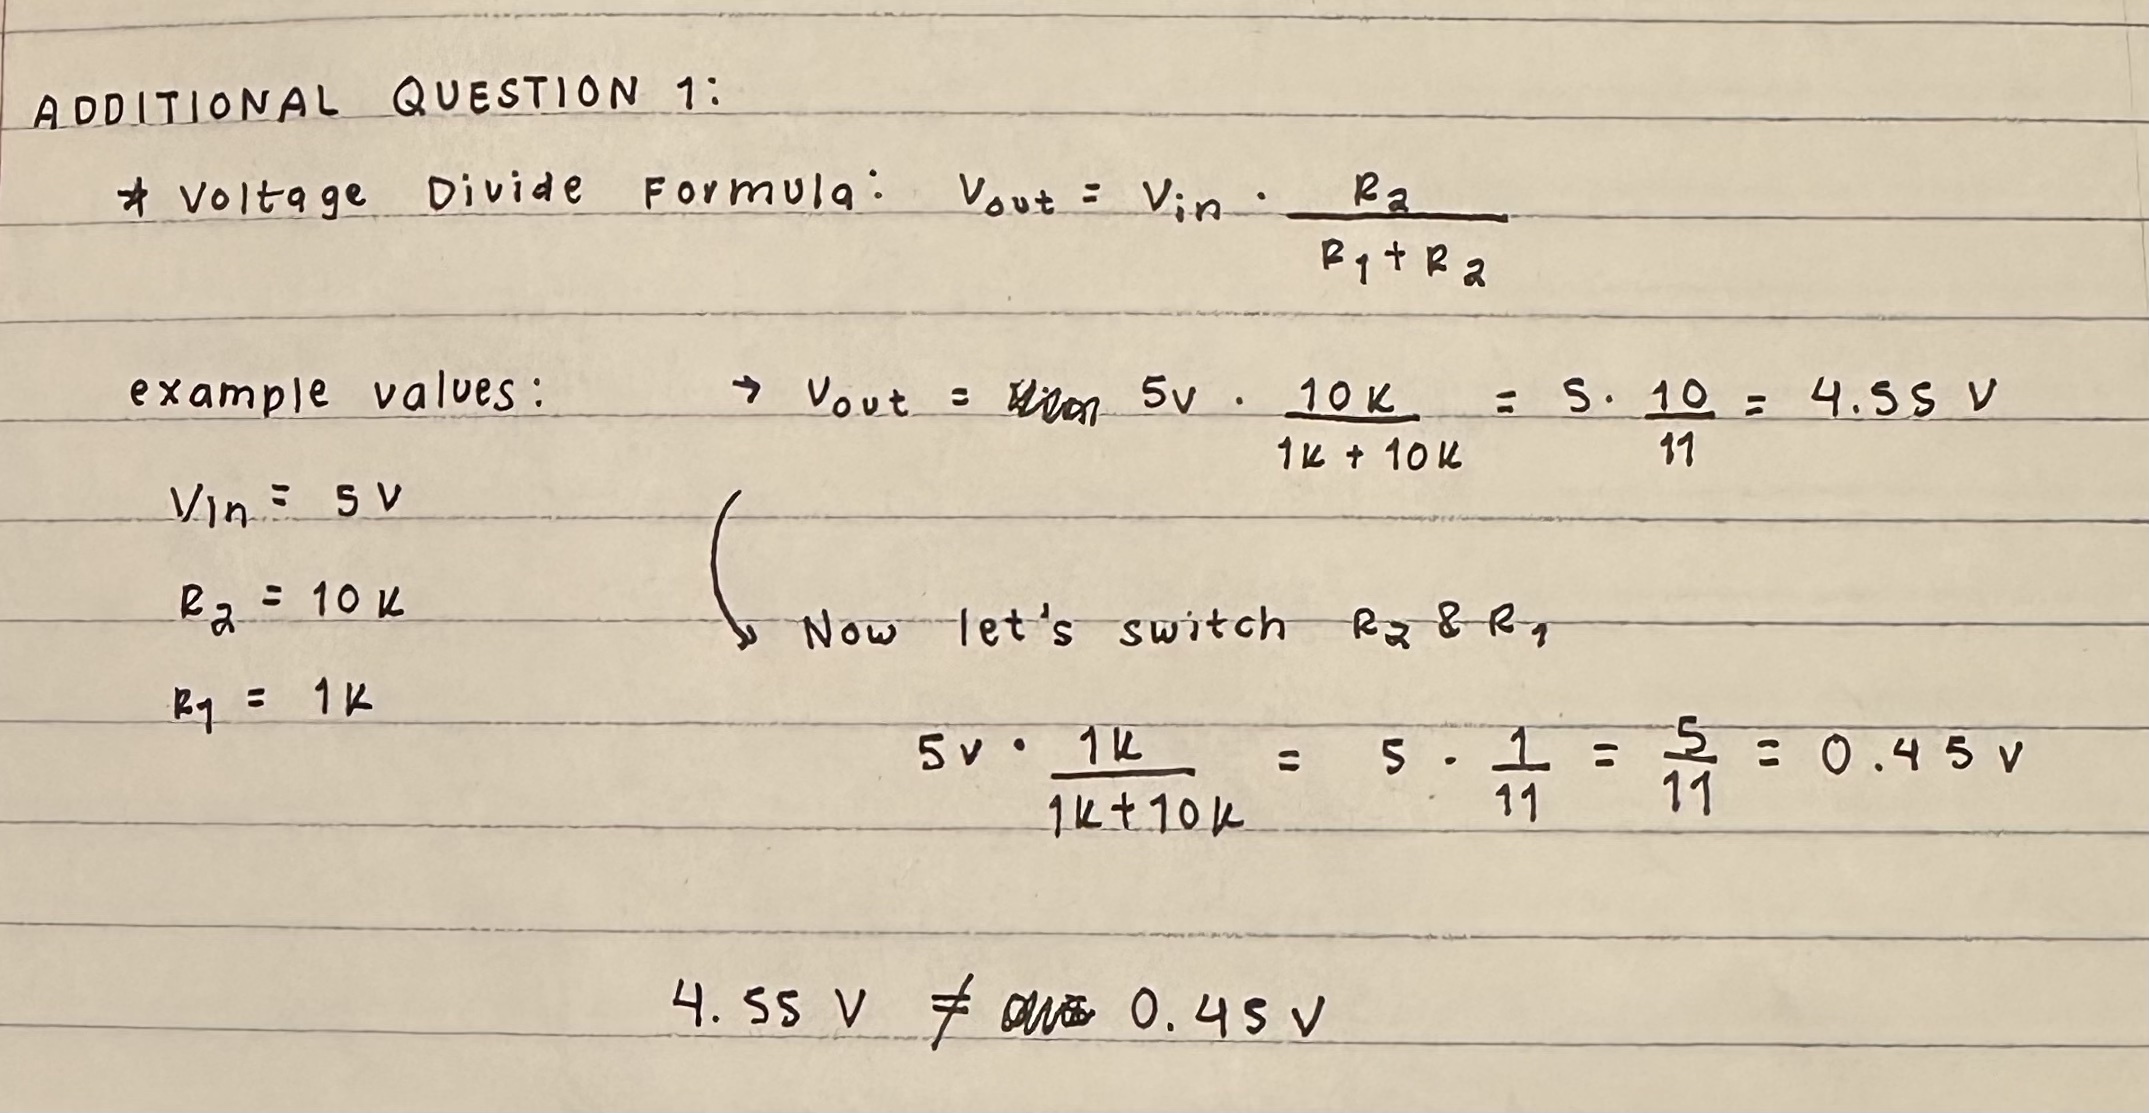 ADDITIONAL QUESTION 1:
* Voltage Divide Formula: Vout = Vin · R2 / (R1 + R2)
example values: → Vout = 5V · 10K / (1K + 10K) = 5 · 10/11 = 4.55 V
Vin = 5 V
R2 = 10 K
Now let's switch R2 & R1
R1 = 1K
5V · 1K / (1K + 10K) = 5 · 1/11 = 5/11 = 0.45 V
4.55 V ≠ 0.45 V